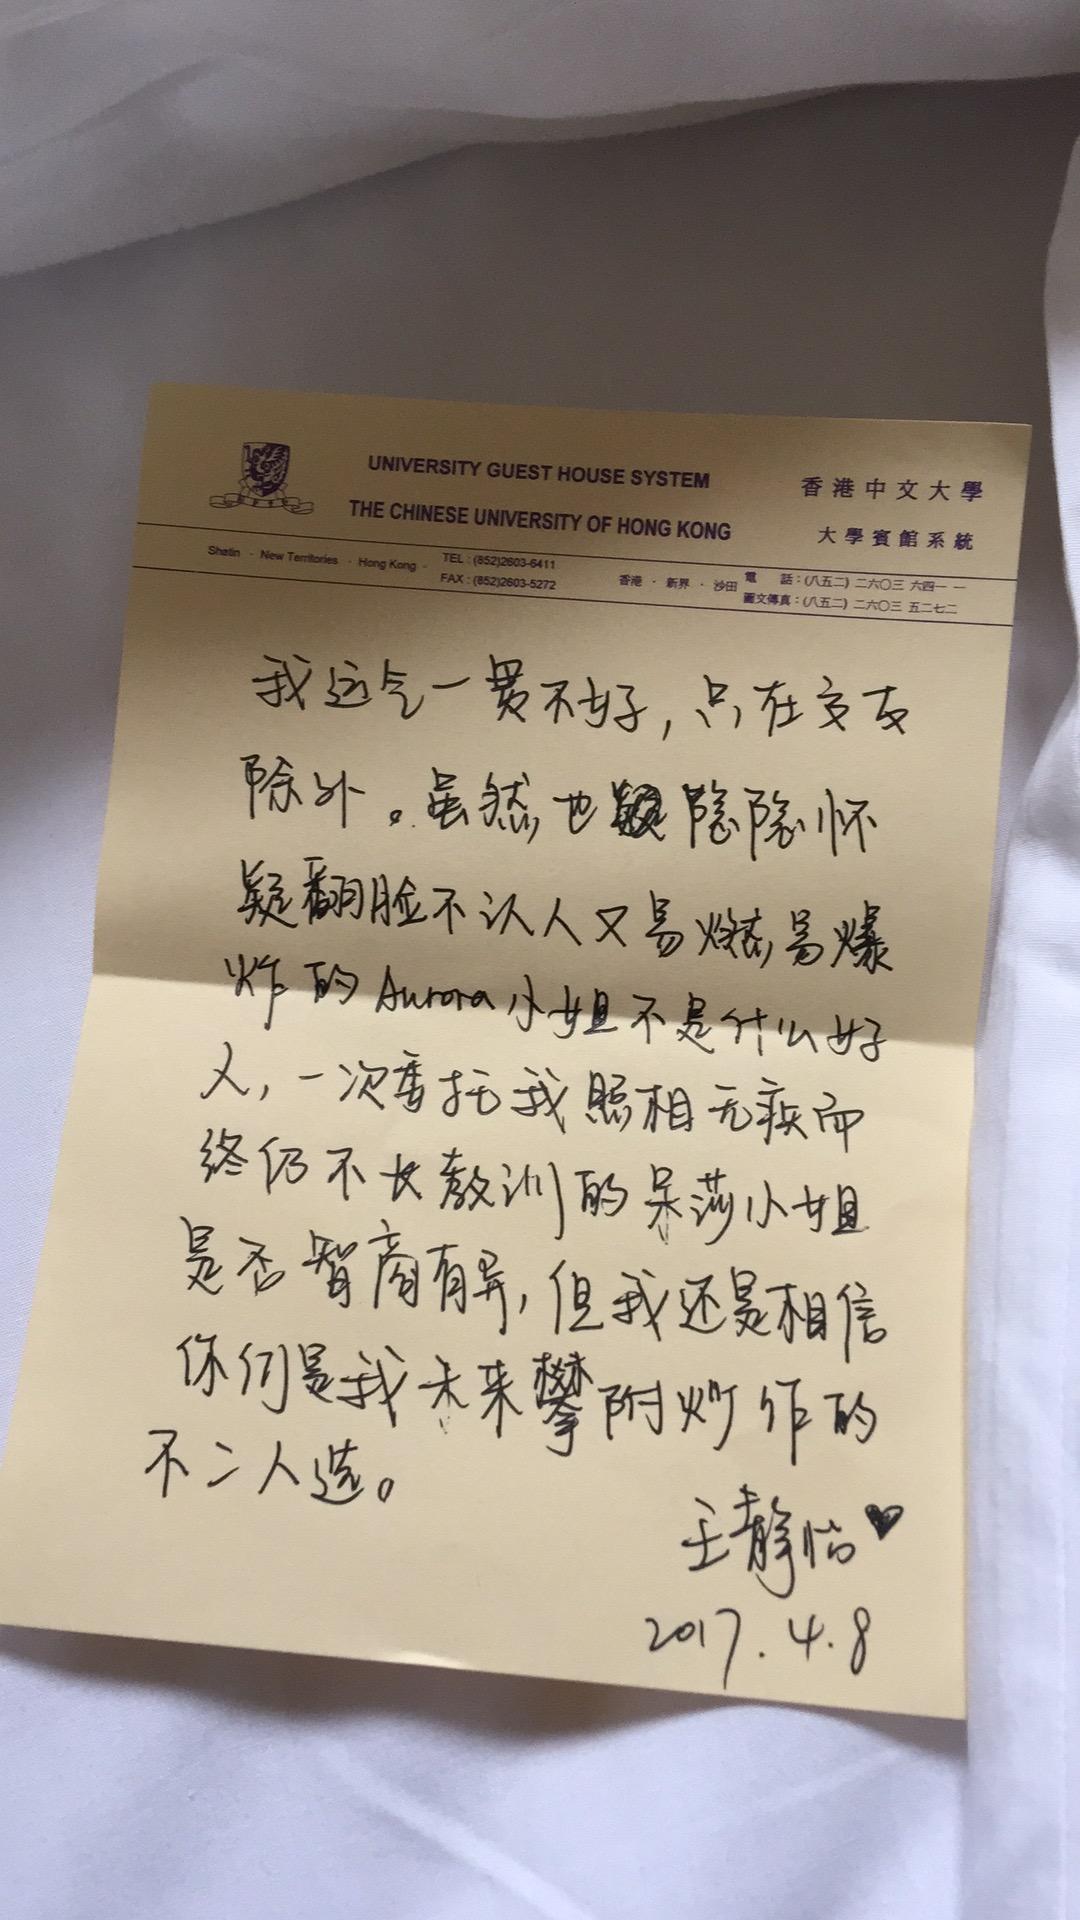 UNIVERSITY GUEST HOUSE SYSTEM
THE CHINESE UNIVERSITY OF HONG KONG
香港中文大學
大學賓館系統
Shatin · New Territories · Hong Kong ·
TEL : (852)2603-6411
FAX : (852)2603-5272
香港 · 新界 · 沙田
電 話：(八五二) 二六〇三 六四一 一
圖文傳真：(八五二) 二六〇三 五二七二
我运气一贯不好，只在交友
除外。虽然也隐隐怀
疑翻脸不认人又易燃易爆
炸的Aurora小姐不是什么好
人，一次委托我照相无疾而
终仍不长教训的呆莎小姐
是否智商有异，但我还是相信
你们是我未来攀附炒作的
不二人选。
王静怡
2017.4.8